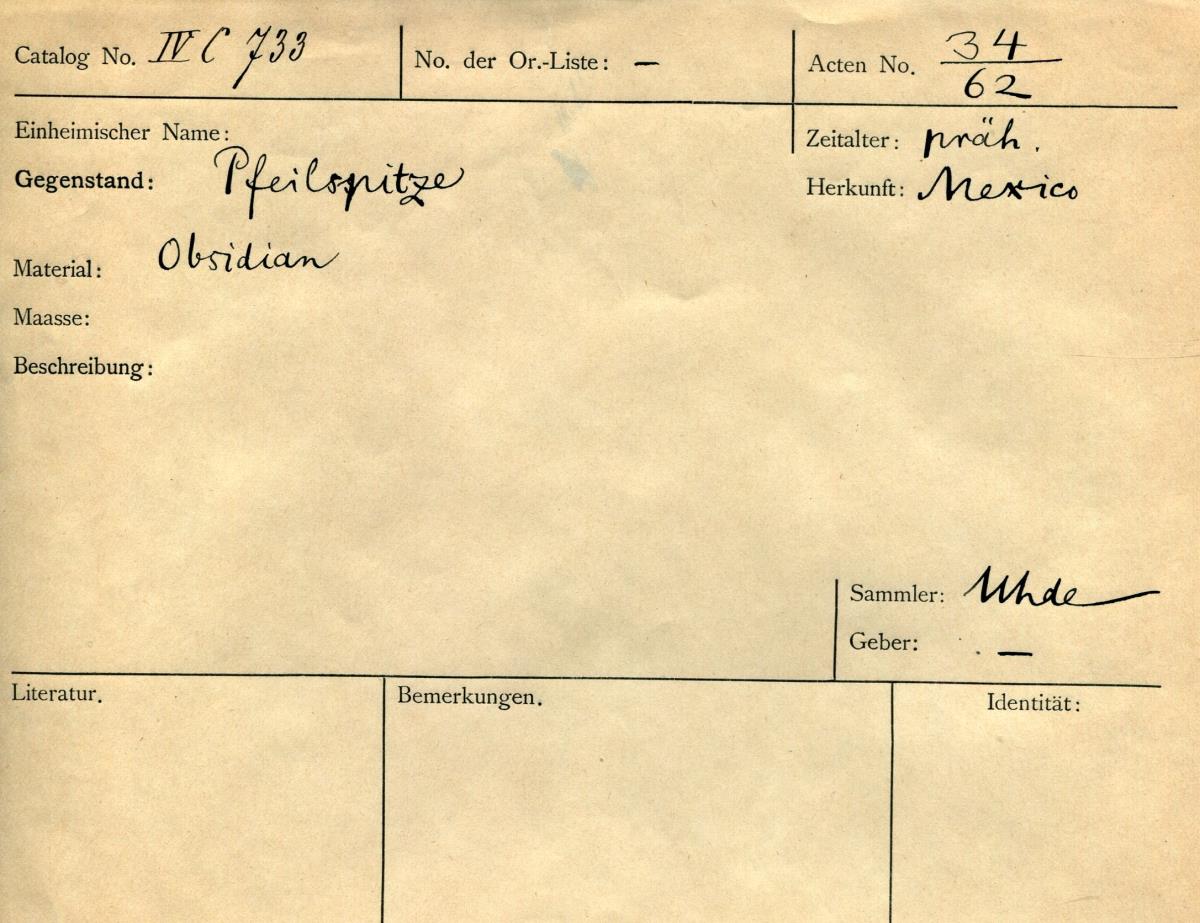 Catalog No. IV C 733 No. der Or.-Liste: — Acten No. 34/62
Einheimischer Name: Zeitalter: präh.
Gegenstand: Pfeilspitze Herkunft: Mexico
Material: Obsidian
Maasse:
Beschreibung:
Sammler: Uhde
Geber: —
Literatur. Bemerkungen. Identität: